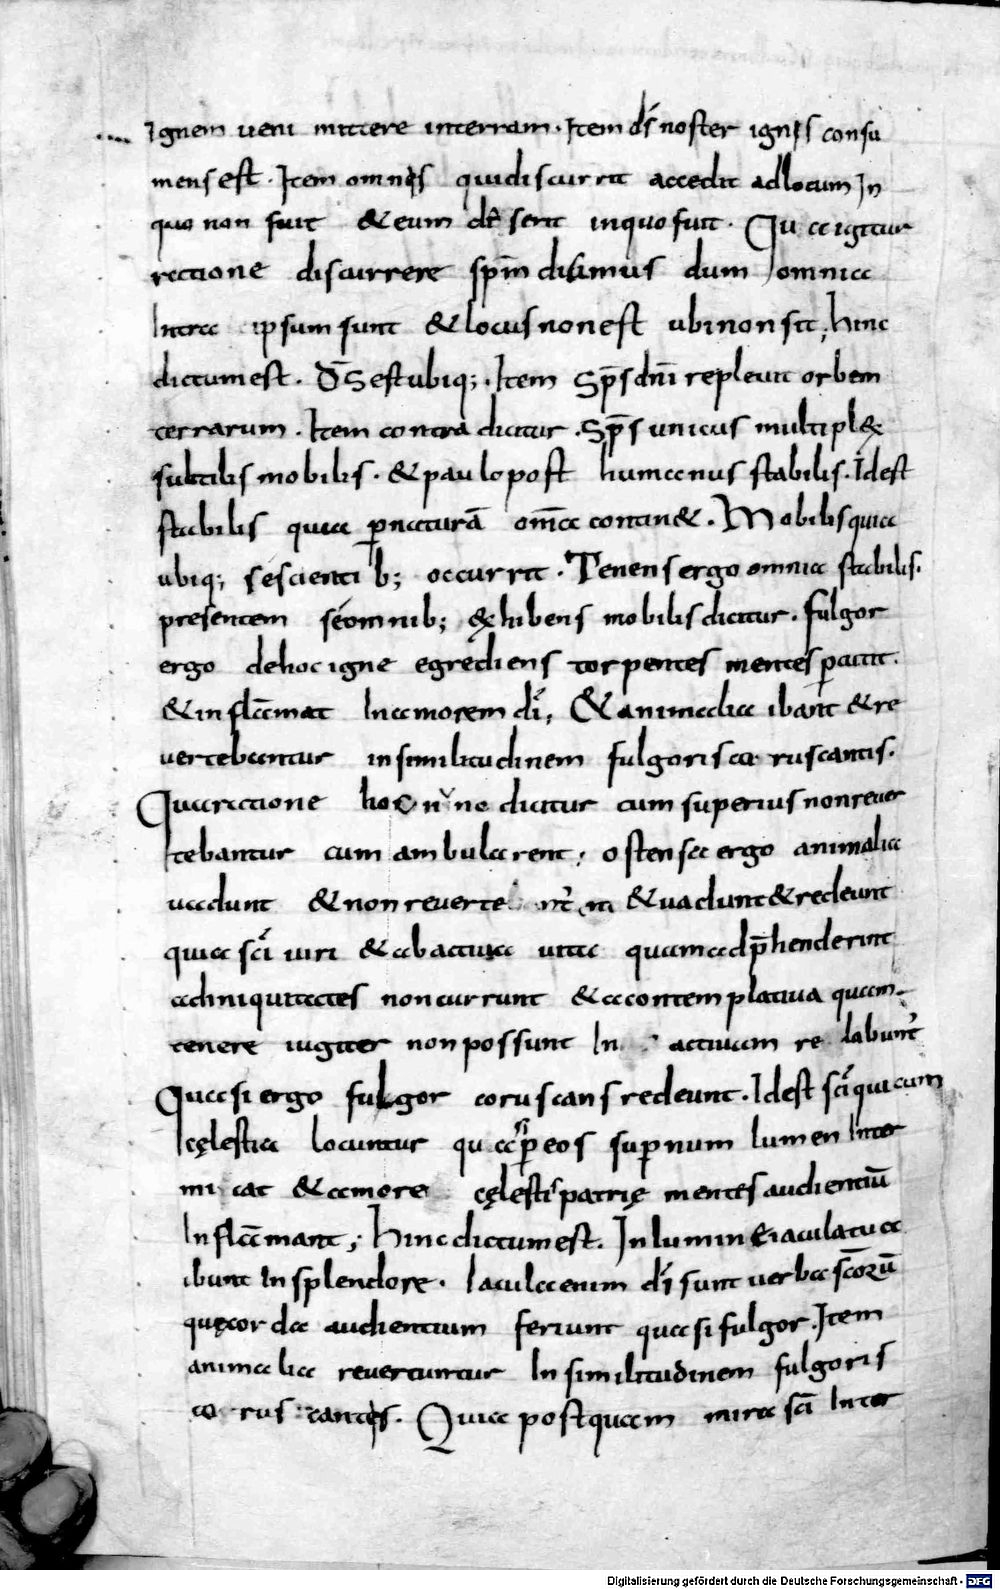 .... Ignem ueni mittere interram. Item dſ noster ignis consu
mens est. Item omnis quidiscurrit accedit adlocum In
quo non fuit &eum deserit inquo fuit. Qua igitur
ratione discurrere spm̄ diximus dum omnia
Intra ipsum sunt &locus nonest ubi non sit; hinc
dictum est. D̄S est ubiq;. Item Sp̄s dn̄i repleuit orbem
terrarum. Item contra dicitur. Sp̄s unicus multipl&
subtilis mobilis. &paulo post humanus stabilis. Idest
stabilis quia p̱naturā om̄a contin&. Mobilis quia
ubiq; se scienti b; occurrit. Tenens ergo omnia stabilis.
presentem se omnib; exhibens mobilis dicitur. fulgor
ergo dehoc igne egrediens torpentes mentes
&inflāmat In amorem dī; &animalia ibant &re
uertebantur in similitudinem fulgoris co ruscantis.
Qua ratione hoc nc̄ no dicitur cum superius non reuer
tebantur cum ambularent; ostensa ergo animalia
uadunt &non &uadunt&redeunt
quia sc̄i uiri &abactiua uita quam adp̄henderint
adiniquitates non currunt &acontemplatiua quam
tenere iugiter non possunt In actiuam re labunt̄
Quasi ergo fulgor coruscans redeunt. Idest sc̄i qui cum
cęlestia locuntur quasi p̱ eos sup̱num lumen Inter
mi cat &amore cęlestis patrię mentes audientiū
Inflāmant; hinc dictum est. In lumin& iaculatua
ibunt In splendore. Iacula enim dī sunt uerba scōrū
quę corda audientium feriunt quasi fulgor. Item
animalia reuertuntur In similitudinem fulgoris
co rus cantis. Quia postquam mira sc̄i Inter